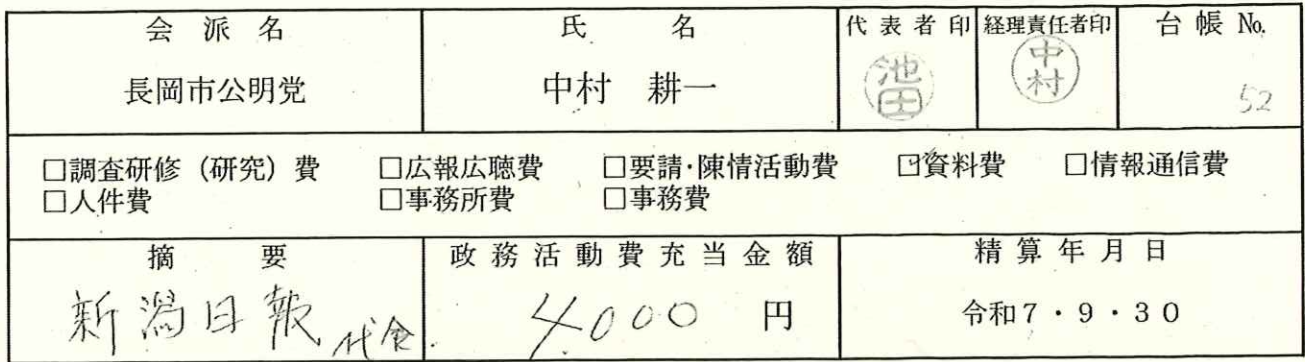 会派名 氏名 代表者印 経理責任者印 台帳 No.
長岡市公明党 中村 耕一 池田 中村 52
□調査研修（研究）費 □広報広聴費 □要請・陳情活動費 ☑資料費 □情報通信費
□人件費 □事務所費 □事務費
摘要 政務活動費充当金額 精算年月日
新潟日報 代金 4,000 円 令和7・9・30